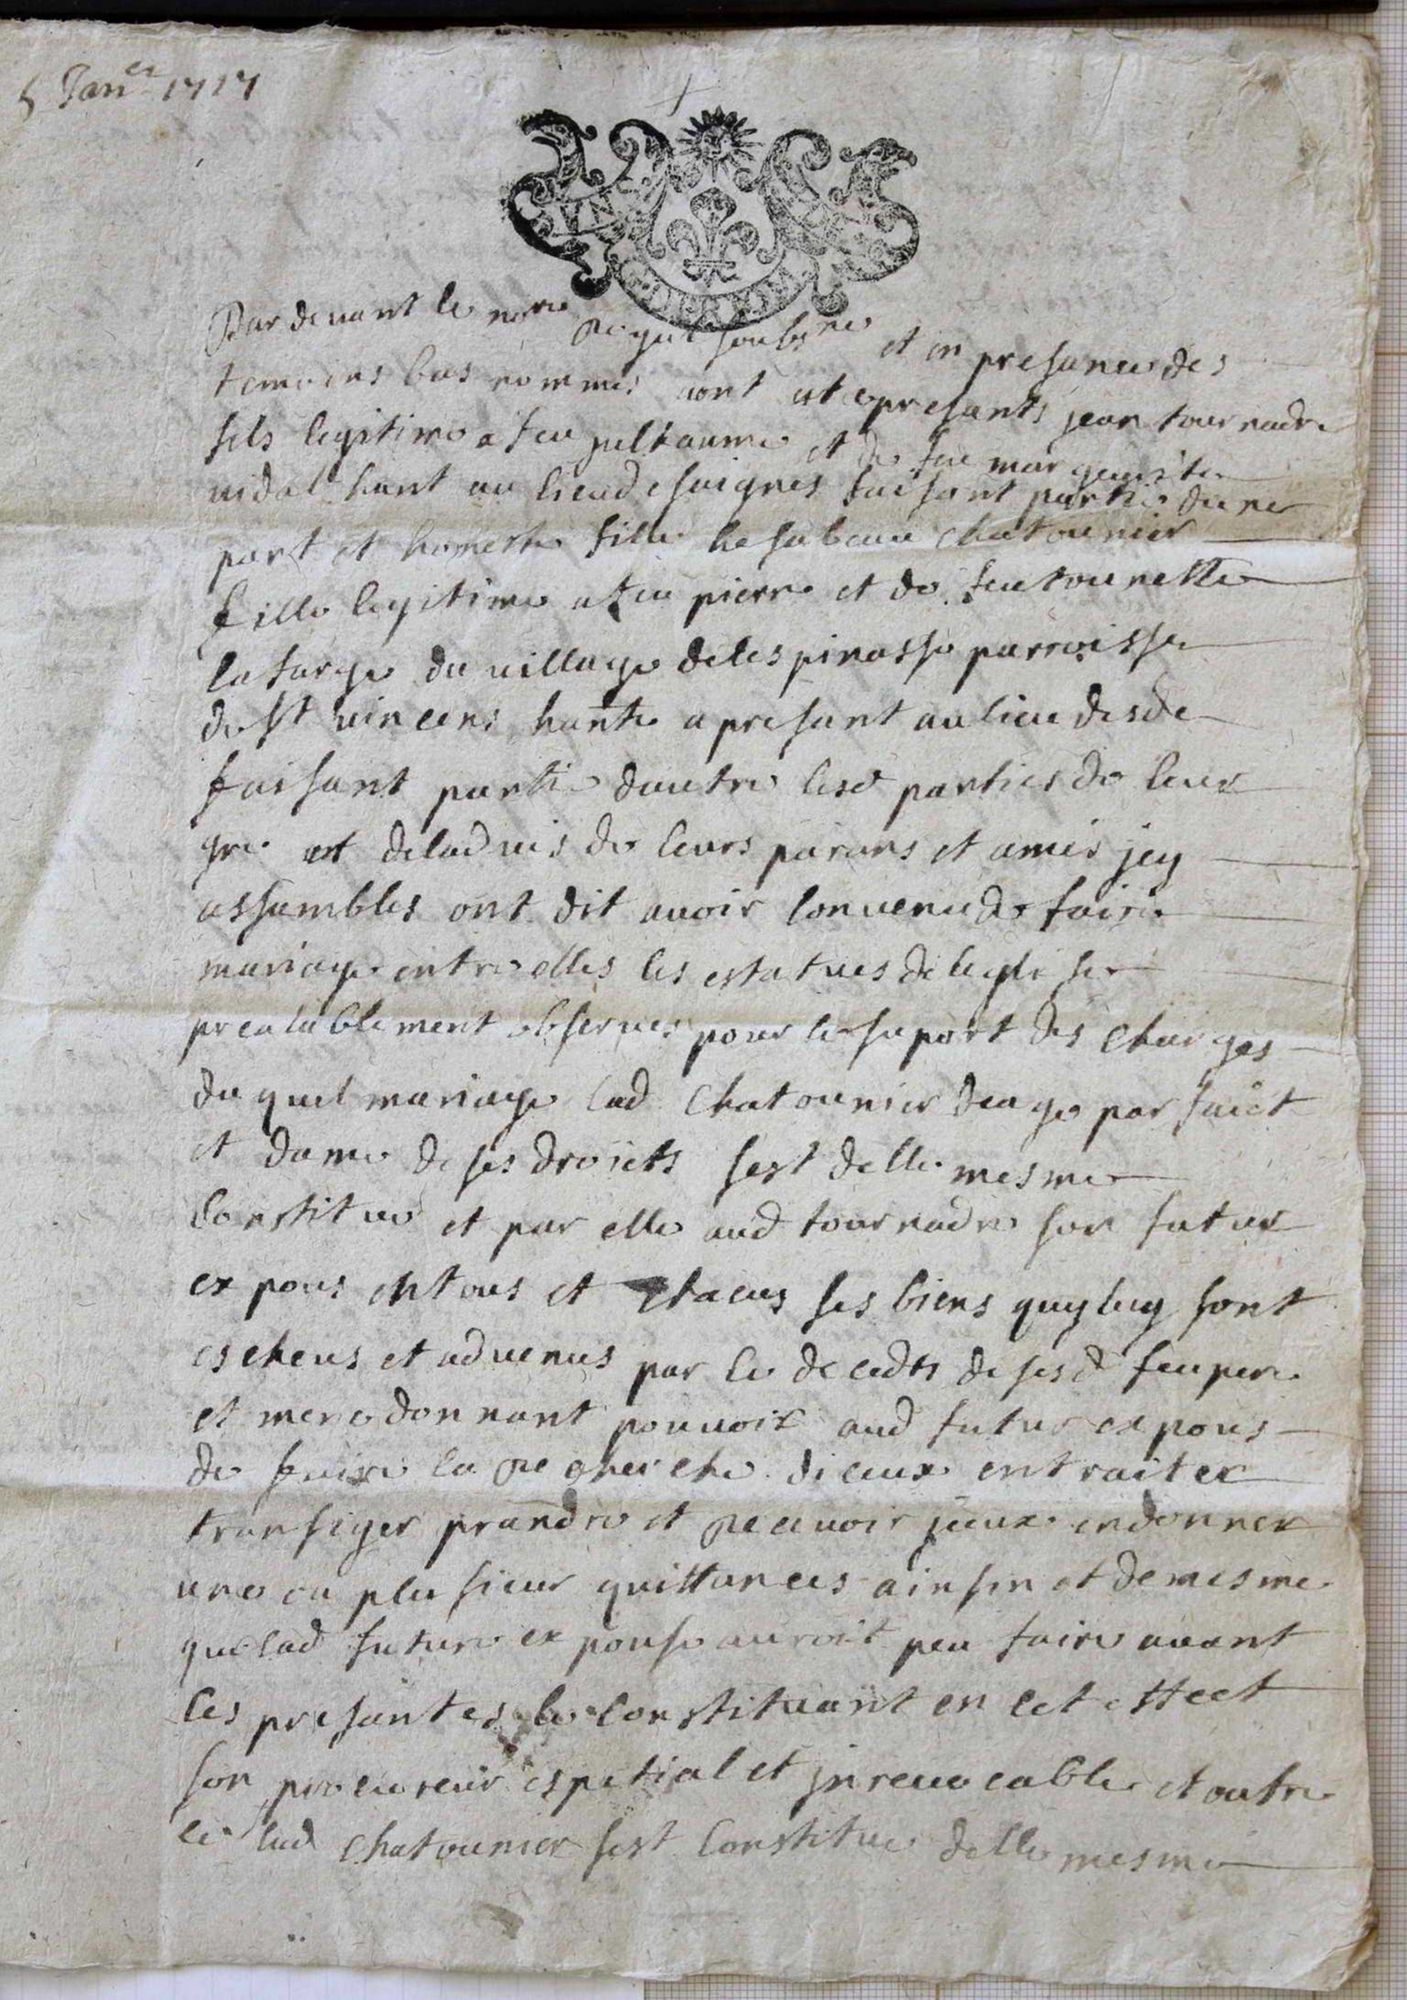 5 Jan.er 1717
Par devant le no.re Royal soubs.né et en presance des
temoins bas nommés sont este presants jean tournadre
fils legitime a feu julhaume et de feu margeuite
vidal hant au lieu de saignes faisant partie dune
part et honneste fille hesabeau chatounier
fille legitime a feu pierre et de feu tounette
lafarge du village de lespinasse parroisse
de st vincens hante a presant au lieu desd
faisant partie dautre lesd parties de leur
gre et de ladvis de leurs parans et amis jcy
assambles ont dit avoir convenu de faire
mariage entre elles les estatues de leglise
prealablement observes pour le suport des charges
du quel mariage lad chatounier deage parfaict
et dame de ses droicts sest delle mesme
constitue et par elle aud tournadre son futur
expous en tous et chacus ses biens quy luy sont
escheus et advenus par le decedts de sesd feu pere
et mere donnant pouvoir aud futur expous
de faire la Recherche diceux en traiter
transiger prandre et Recevoir jceux en donner
une ou plusieur quittances ainsin et de mesme
que lad future expouse auroit peu faire avant
les presantes le constituant en cet effect
son procureur espetial et jrrevocable et outre
ce lad chatounier sest constitue delle mesme